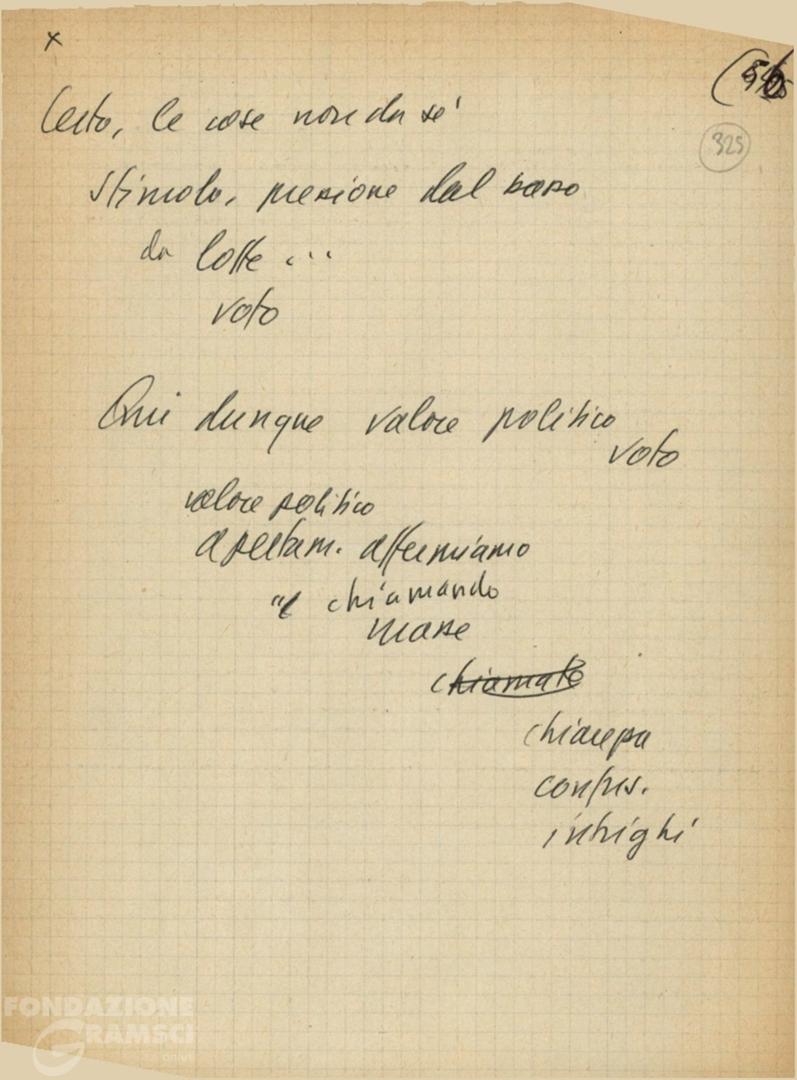 x
(56
325
Certo, le cose non da sé
stimolo, pressione dal basso
da lotte ...
voto
Qui dunque valore politico
voto
valore politico
apertam. affermiamo
chiamando
masse
chiamate
chiarezza
contro
intrighi
FONDAZIONE
GRAMSCI